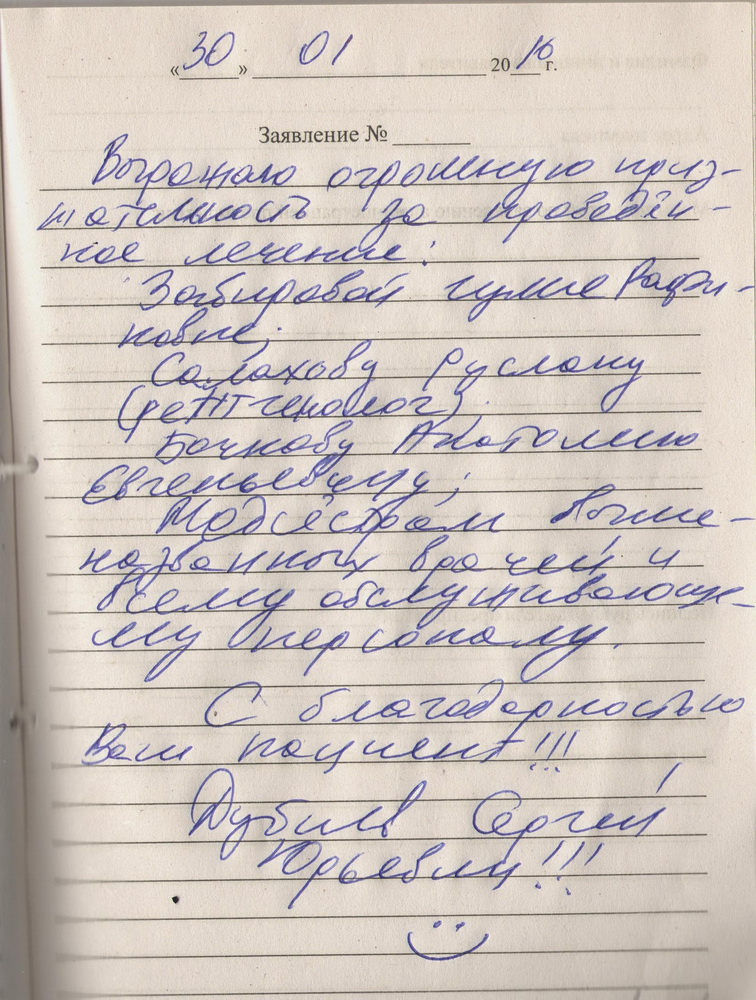 «30» 01 2016 г.
Заявление №
Выражаю огромную приз-
нательность за проведён-
ное лечение:
Забировой Гулие Рафи-
ковне;
Салахову Руслану
(рентгенолог);
Бочкову Анатолию
Евгеньевичу;
Медсёстрам выше-
названных врачей и
всему обслуживающе-
му персоналу.
С благодарностью
Ваш пациент!!!
Сергей
Юрьевич!!!